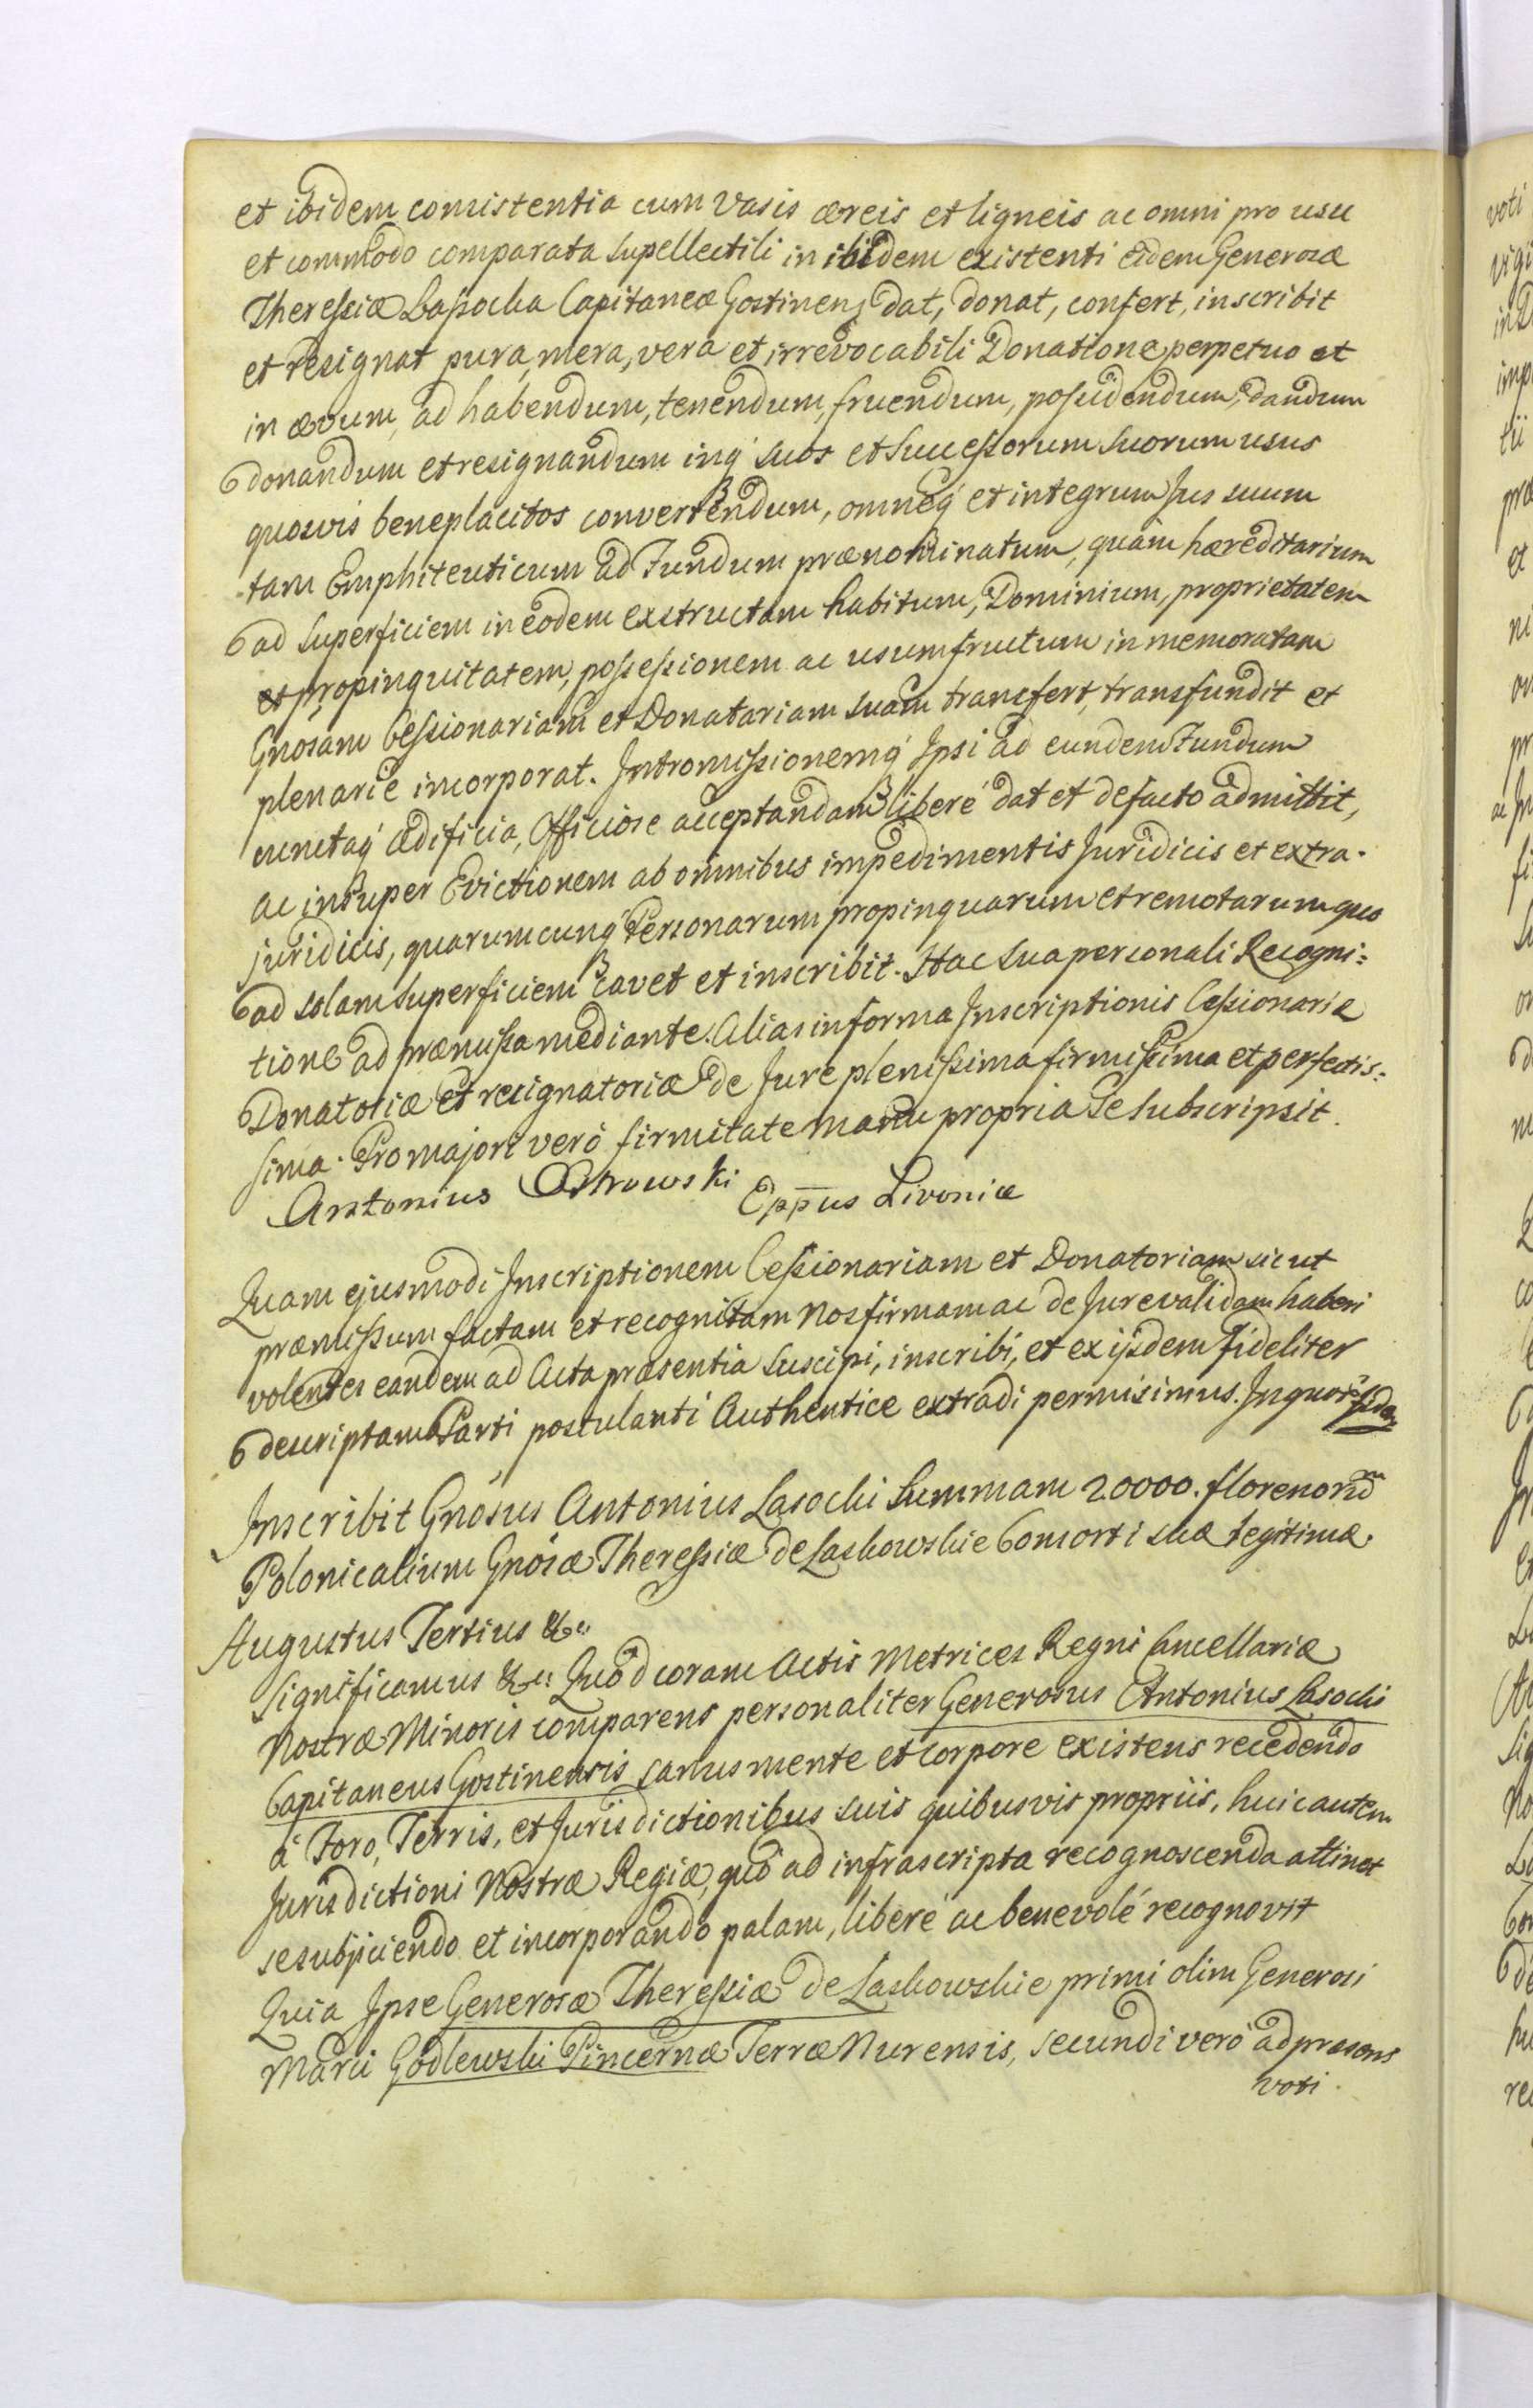 et ibidem consistentia cum Vasis æreis et ligneis ac omni pro usu
et commodo comparata Supellectili in ibidem existenti eidem Generosæ
Theressiæ Lassocka Capitaneæ Gostinens dat, donat, confert, inscribit
et resignat pura, mera, vera et irrevocabili Donatione perpetuo et
in ævum, ad habendum, tenendum, fruendum, possidendum, dandum
donandum et resignandum inq suos et Successorum suorum usus
quosvis beneplacitos convertendum, omneq et integrum Jus suum
tam Emphiteuticum ad Fundum prænominatum, quàm hæreditarium
ad Superficiem in eodem exstructam habitum, Dominium, proprietatem
et propinquitatem, possessionem ac usumfructum in memoratam
Gnosam Cessionariam et Donatariam suam transfert, transfundit et
plenarie incorporat. Intromissionemq Ipsi ad eundem Fundum
cunctaq Ædificia, Officiose acceptandam liberé dat et defacto admittit,
ac insuper Evictionem ab omnibus impedimentis Juridicis et extra-
juridicis, quarumcunq Personarum propinquarum et remotarum quo
ad solam Superficiem cavet et inscribit. Hac Sua personali Recogni:
tione ad præmissa mediante. Alias in forma Inscriptionis Cessionariæ
Donatoriæ et resignatoriæ de Jure plenissima firmissima et perfectis:
sima. Pro majori verò firmitate manu propria Se Subscripsit.
Antonius Ostrowski Eppus Livoniæ
Quam ejusmodi Inscriptionem Cessionariam et Donatoriam sicut
præmissum factam et recognitam Nos firmam ac de Jure validam haberi
volentes eandem ad Acta præsentia Suscipi, inscribi, et ex ijsdem fideliter
descriptam Parti postulanti Authentice extradi permisimus. In quor fidem
Inscribit Gnosus Antonius Lasocki Summam 20000. florenorum
Polonicalium Gnosæ Theressiæ de Laskowskie Consorti suæ legitimæ.
Augustus Tertius &c
Significamus &c: Quòd coram Actis Metrices Regni Cancellariæ
Nostræ Minoris comparens personaliter Generosus Antonius Lasocki
Capitaneus Gostinensis sanus mente et corpore existens recedendo
à Foro, Terris, et Jurisdictionibus suis quibusvis propriis, huic autem
Jurisdictioni Nostræ Regiæ, quò ad infrascripta recognoscenda attinet
se subjiciendo et incorporando palam, liberé ac benevolé recognovit
Quia Ipse Generosæ Theressiæ de Laskowskie primi olim Generosi
Marci Godlewski Pincernæ Terræ Nurensis, secundi verò ad præsens
voti